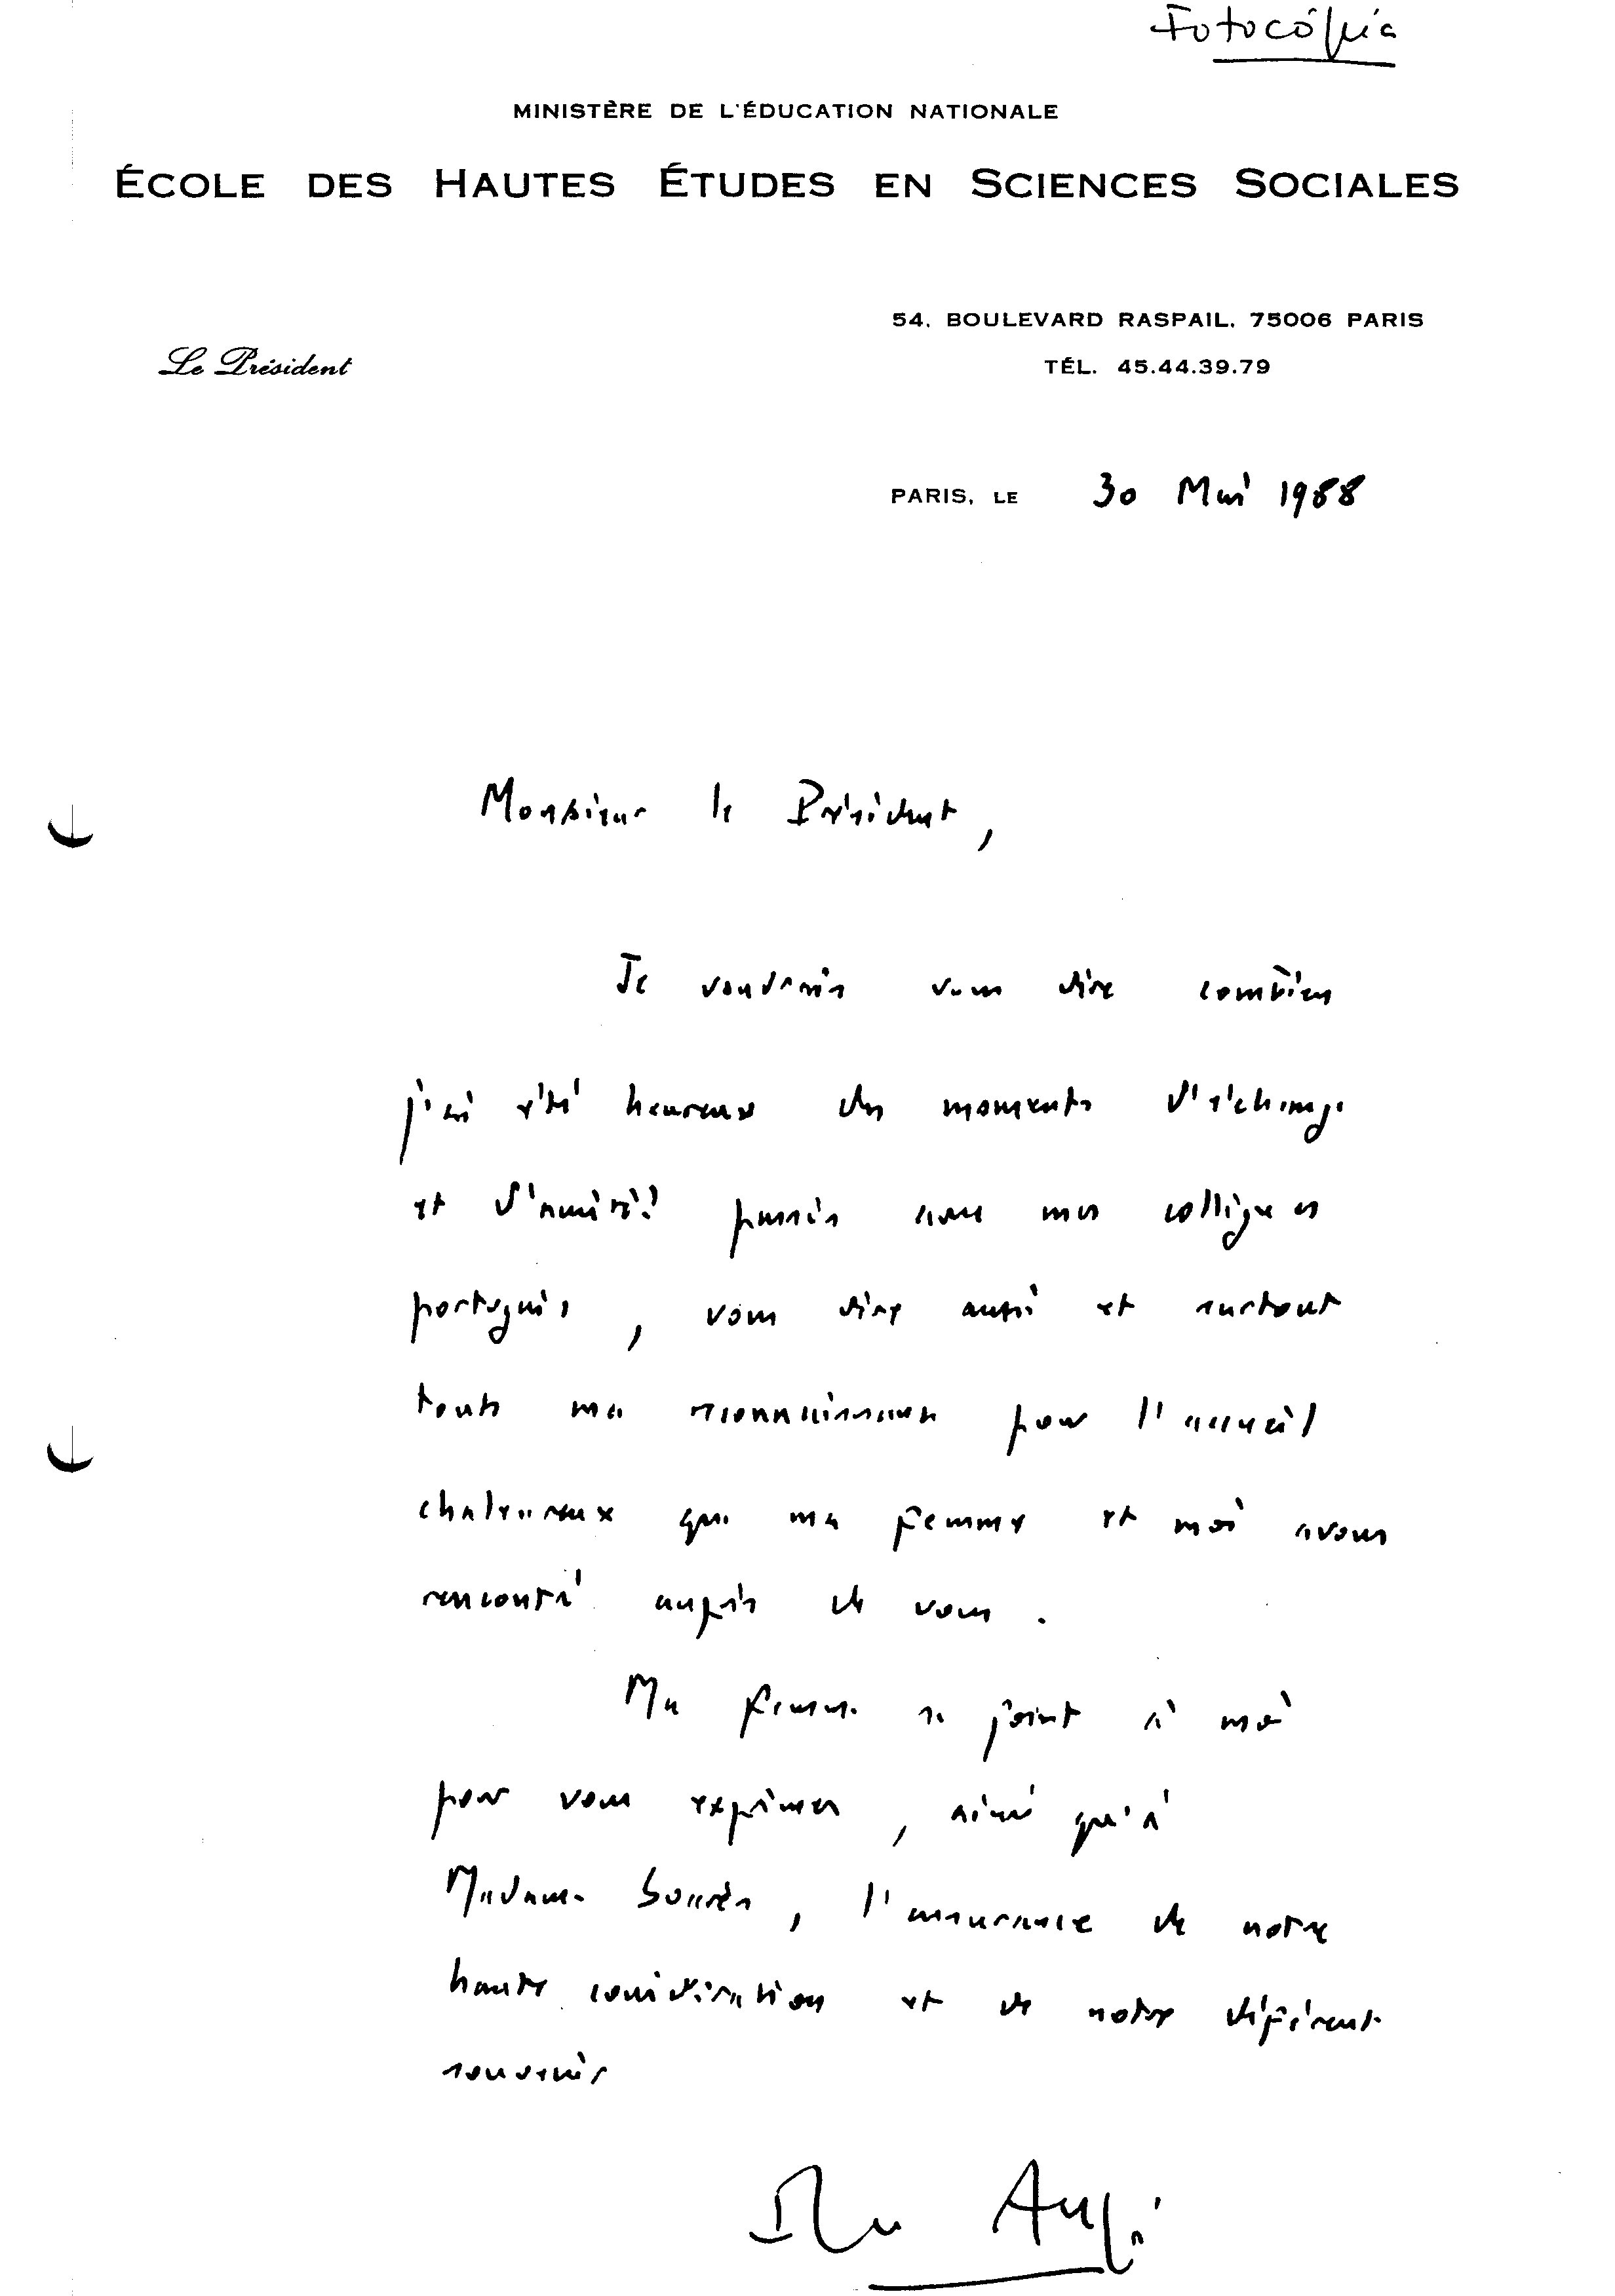 Fotocópia
MINISTÈRE DE L'ÉDUCATION NATIONALE
ÉCOLE DES HAUTES ÉTUDES EN SCIENCES SOCIALES
54, BOULEVARD RASPAIL, 75006 PARIS
Le Président
TÉL. 45.44.39.79
PARIS, LE 30 Mai 1988
Monsieur le Président,
Je voudrais vous dire combien
j'ai été heureux des moments d'échange
et d'amitié passés avec mes collègues
portugais, vous dire aussi et surtout
toute ma reconnaissance pour l'accueil
chaleureux que ma femme et moi avons
rencontré auprès de vous.
Ma femme se joint à moi
pour vous exprimer, ainsi qu'à
Madame Soarès, l'assurance de notre
haute considération et de notre déférent
souvenir
Augé